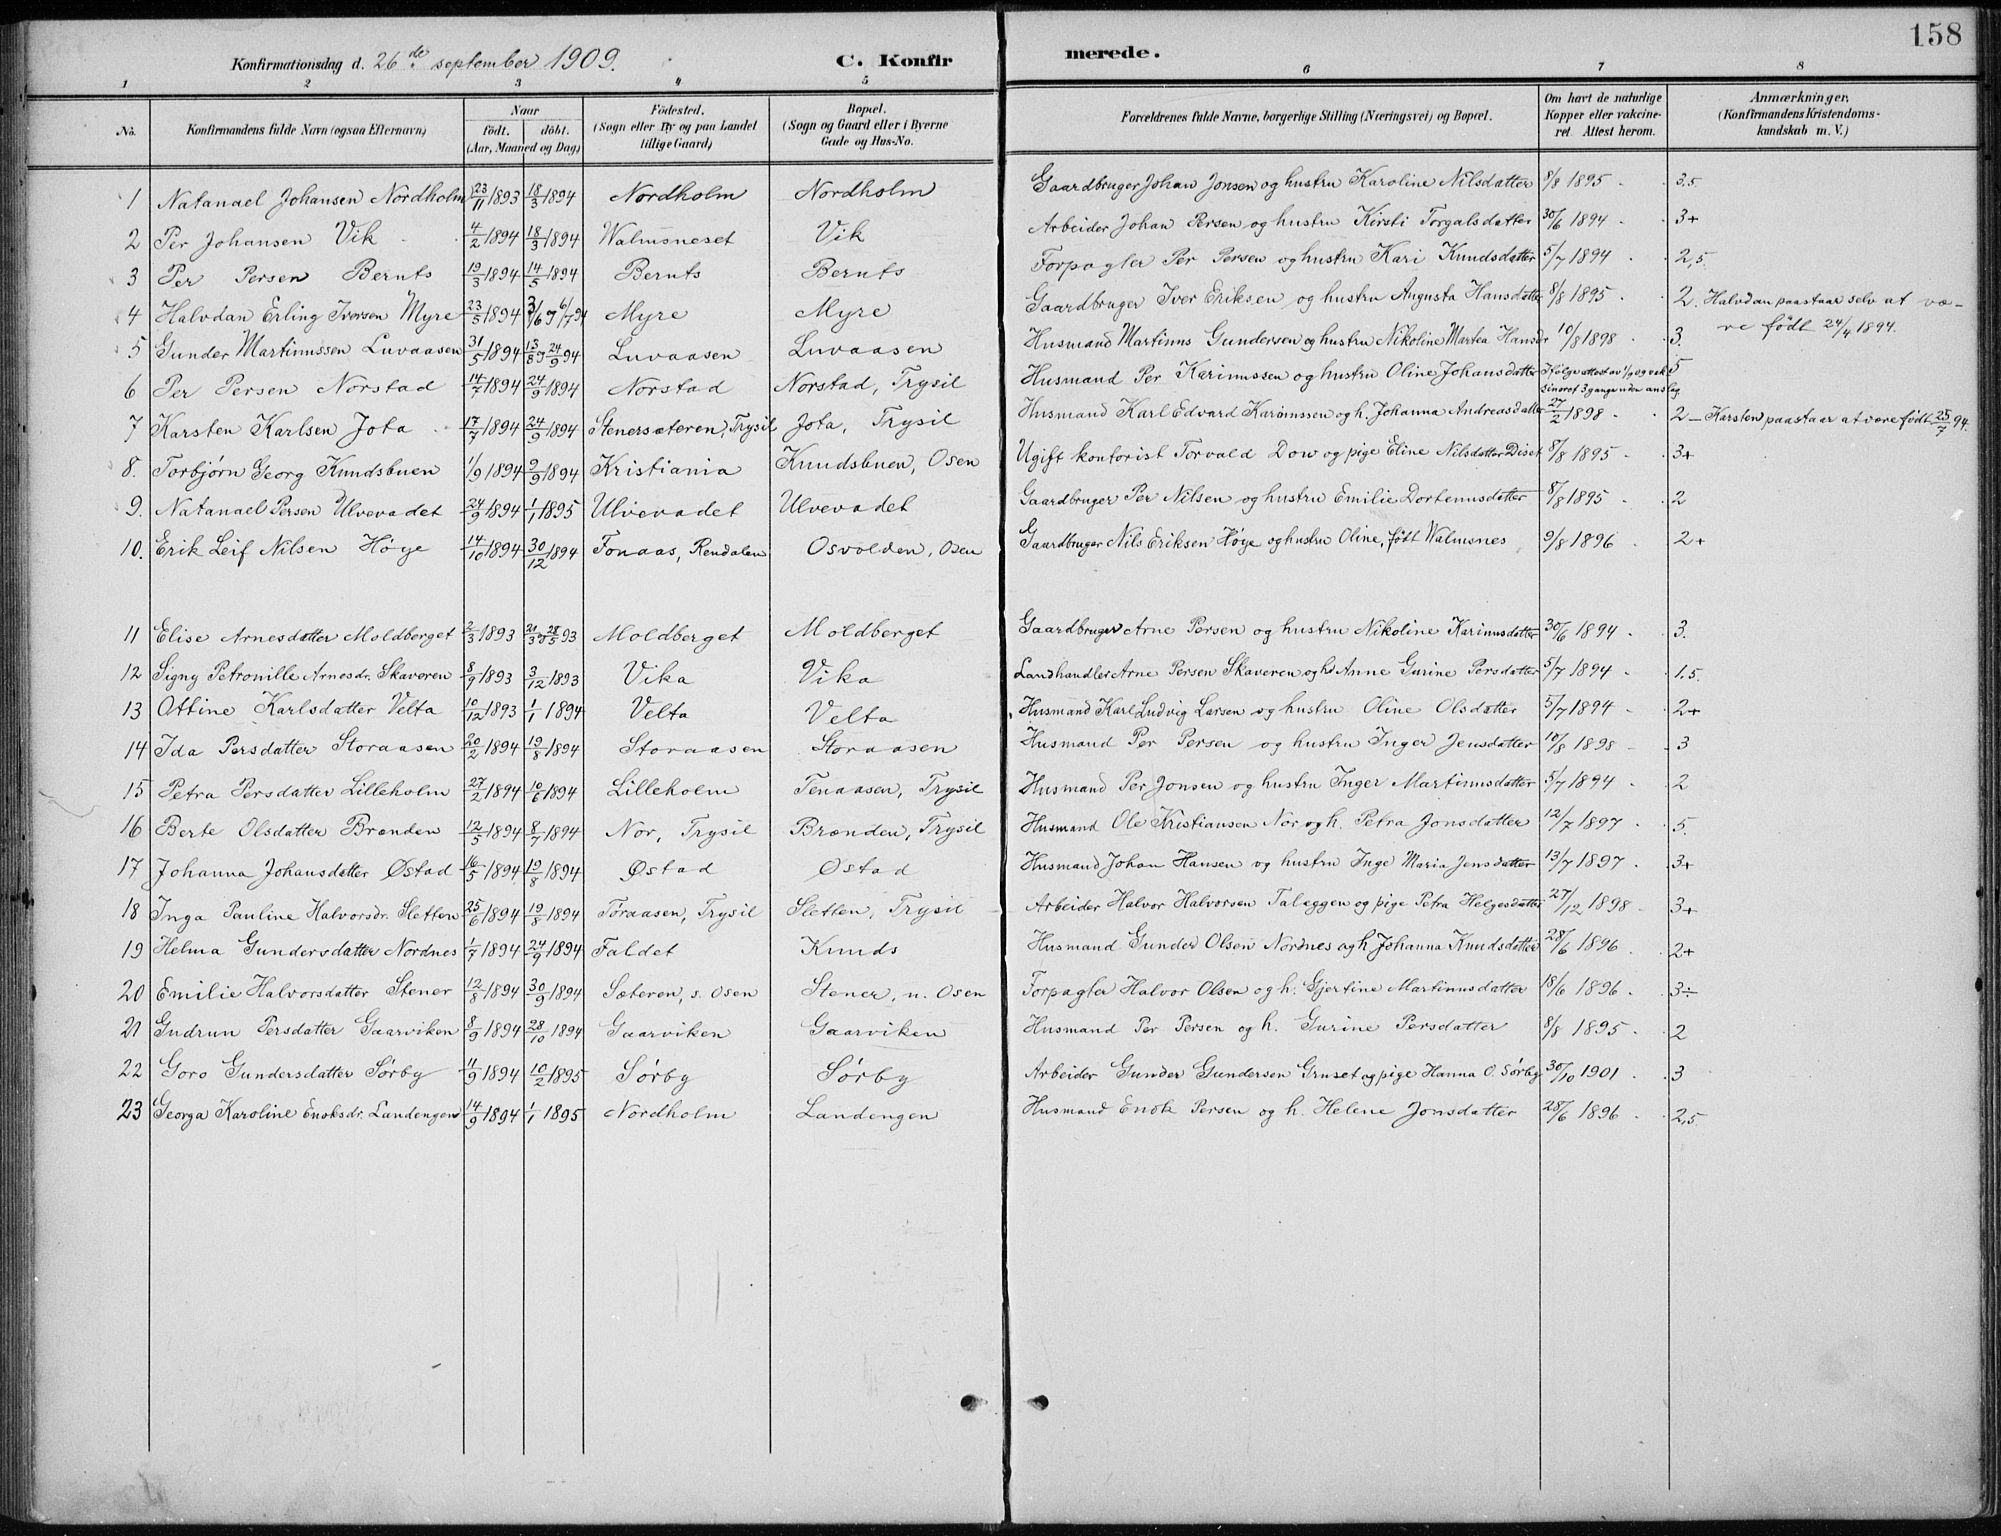 158
Konfirmationsdag d. 26de september 1909. C. Konfirmerede.
1 2 3 4 5 6 7 8
No. Konfirmandens fulde Navn (ogsaa Efternavn) Naar födt. döbt. (Aar, Maaned og Dag) Födested. (Sogn eller By og paa Landet tillige Gaard) Bopæl. (Sogn og Gaard eller i Byerne Gade og Hus-No. Forældrenes fulde Navne, borgerlige Stilling (Næringsvei) og Bopæl. Om havt de naturlige Kopper eller vakcineret. Attest herom. Anmærkninger. (Konfirmandens Kristendomskundskab m. V.)
1 Natanael Johansen Nordholm 23/11 1893 18/3 1894 Nordholm Nordholm Gaardbruger Johan Jonsen og hustru Karoline Nilsdatter 8/8 1895 3,5.
2 Per Johansen Vik 4/2 1894 18/3 1894 Walmsneset Vik Arbeider Johan Persen og hustru Kirsti Torgalsdatter 30/6 1894 3+
3 Per Persen Bernts 19/3 1894 14/5 1894 Bernts Bernts Forpagter Per Persen og hustru Kari Knudsdatter 5/7 1894 2,5.
4 Halvdan Erling Iversen Myre 23/5 1894 3/6 og 6/7 94 Myre Myre Gaardbruger Iver Eriksen og hustru Augusta Hansdatter 8/8 1895 2. Halvdan paastaar selv at være født 24/4 1894.
5 Gunder Martinussen Luvaasen 31/5 1894 13/8 og 24/9 94 Luvaasen Luvaasen Husmand Martinus Gundersen og hustru Nikoline Martea Hansdr 10/8 1898 3.
6 Per Persen Norstad 14/7 1894 24/9 1894 Norstad Norstad, Trysil Husmand Per Karinussen og hustru Oline Johansdatter Ifølge attest av 1/9 09 vaksineret 3 gange uden anslag 5
7 Karsten Karlsen Jota 17/7 1894 24/9 1894 Stenersæteren, Trysil Jota, Trysil Husmand Karl Edvard Karinussen og h. Johanna Andreasdatter 27/2 1898 2 – Karsten paastaar at være født 25/7 94.
8. Torbjørn Georg Knudsbuen 1/9 1894 9/9 1894 Kristiania Knudsbuen, Osen Ugift kontorist Torvald Dow og pige Eline Nilsdatter Diset 8/8 1895 3+
9. Natanael Persen Ulvevadet 24/9 1894 1/1 1895 Ulvevadet Ulvevadet Gaardbruger Per Nilsen og hustru Emilie Dortenusdatter 8/8 1895 2
10. Erik Leif Nilsen Høye 14/10 1894 30/12 1894 Fonaas, Rendalen Osvolden, Osen Gaardbruger Nils Eriksen Høye og hustru Oline, født Walmsnes 9/8 1896 2+
11 Elise Arnesdatter Moldberget 2/3 1893 21/3 og 28/5 93 Moldberget Moldberget Gaardbruger Arne Persen og hustru Nikoline Karinusdatter 30/6 1894 3.
12 Signy Petronille Arnesdr. Skaveren 8/9 1893 3/12 1893 Vika Vika Landhandler Arne Persen Skaveren og h. Anne Gurine Persdatter 5/7 1894 1.5.
13 Ottine Karlsdatter Velta 10/12 1893 1/1 1894 Velta Velta Husmand Karl Ludvig Larsen og hustru Oline Olsdatter 5/7 1894 2+
14 Ida Persdatter Storaasen 20/2 1894 19/8 1894 Storaasen Storaasen Husmand Per Persen og hustru Inger Jensdatter 10/8 1898 3
15 Petra Persdatter Lilleholm 27/2 1894 10/6 1894 Lilleholm Tenaasen, Trysil Husmand Per Jonsen og hustru Inger Martinusdatter 5/7 1894 2
16 Berte Olsdatter Brænden 12/5 1894 8/7 1894 Nor, Trysil Brænden, Trysil Husmand Ole Kristiansen Nor og h. Petra Jonsdatter 12/7 1897 5.
17 Johanna Johansdatter Østad 16/5 1894 19/8 1894 Østad Østad Husmand Johan Hansen og hustru Inge Maria Jensdatter 13/7 1897 3+
18 Inga Pauline Halvorsdr. Sletten 25/6 1894 19/8 1894 Føraasen, Trysil Sletten, Trysil Arbeider Halvor Halvorsen Talæggen og pige Petra Helgesdatter 27/12 1898 3+
19 Helma Gundersdatter Nordnes 1/7 1894 24/9 1894 Faldet Knuds Husmand Gunder Olsen Nordnes og h. Johanna Knudsdatter 28/6 1896 2+
20 Emilie Halvorsdatter Stener 12/8 1894 30/9 1894 Sæteren, s. Osen Stener, n. Osen Forpagter Halvor Olsen og h. Gjertine Martinusdatter 18/6 1896 3÷
21 Gudrun Persdatter Gaarviken 8/9 1894 28/10 1894 Gaarviken Gaarviken Husmand Per Persen og h. Gurine Persdatter 8/8 1895 2
22 Goro Gundersdatter Sørby 11/9 1894 10/2 1895 Sørby Sørby Arbeider Gunder Gundersen Gruset og pige Hanna O. Sørby 30/10 1901 3
23 Georga Karoline Enoksdr. Landengen 14/9 1894 1/1 1895 Nordholm Landengen Husmand Enok Persen og h. Helene Jonsdatter 28/6 1896 2,5.